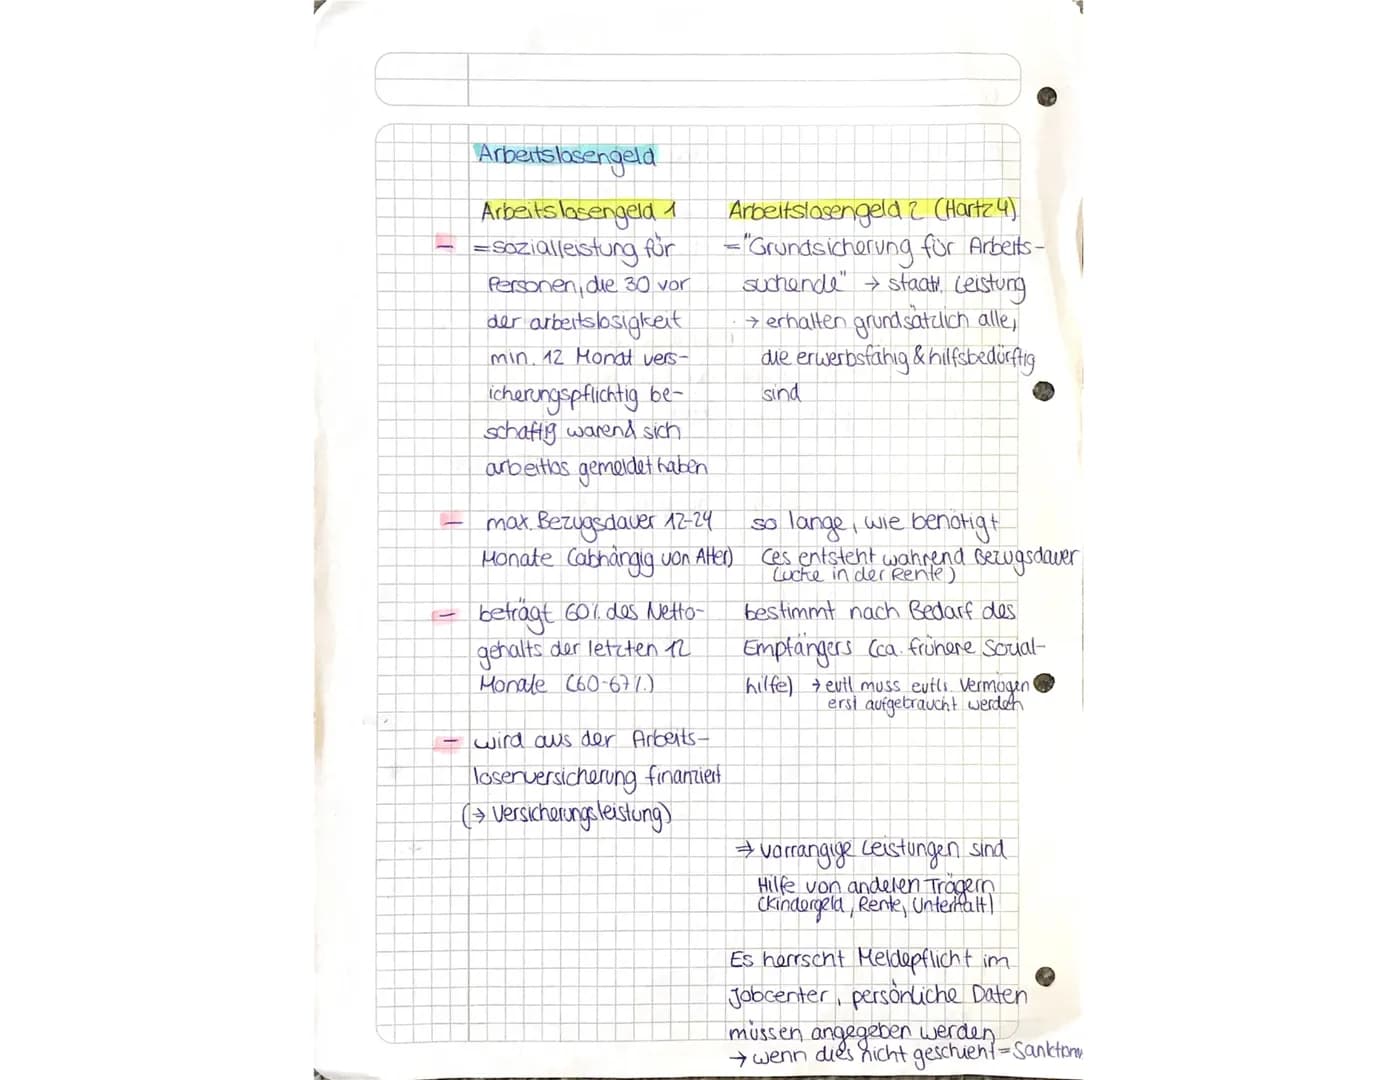 Arbeitslosengeld
Arbeitslosengeld 1
- =sozialleistung für
Personen, die 30 vor
der arbeitslosigkeit
min. 12 Monat vers-
icherungspflichtig be-
schäftig waren& sich
arbeitlos gemeldet haben
- max. Bezugsdauer 12-24
Monate (abhängig von Alter)
- beträgt 60% des Netto-
gehalts der letzten 12
Monate (60-67%)
- wird aus der Arbeits-
loserversicherung finanziert
(→ Versicherungsleistung)
Arbeitslosengeld 2 (Hartz 4)
="Grundsicherung für Arbeits-
suchende" → staatl. Leistung
→ erhalten grundsätzlich alle,
die erwerbsfähig & hilfsbedürftig
sind
so lange, wie benötigt
(es entsteht während Bezugsdauer
Lücke in der Rente)
bestimmt nach Bedarf des
Empfängers (ca. frühere Sozial-
hilfe) → evtl muss evtll. Vermögen
erst aufgebraucht werden
⇒ vorrangige Leistungen sind
Hilfe von anderen Trägern
(Kindergeld, Rente, Unterhalt)
Es herrscht Meldepflicht im
Jobcenter, persönliche Daten
müssen angegeben werden
→ wenn dies nicht geschieht =